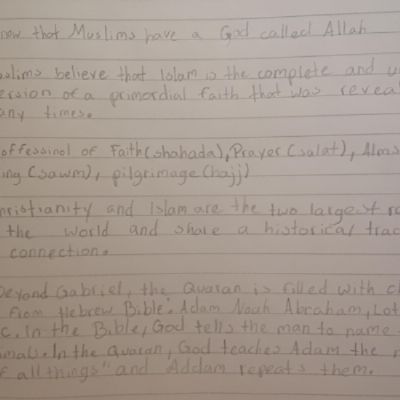 now that Muslims have a God called Allah
uslims believe that Islam is the complete and u
ersion of a primordial faith that was reveal
any times.
offessinol of Faith(shahada), Prayer (salat), Alms
ing (sawm), pilgrimage (hajj)
hristianity and islam are the two largest re
the world and share a historical trad
connection.
Beyond Gabriel, the Quaran is filled with ch
from Hebrew Bible: Adam Noah Abraham, Lot
c. In the Bible, God tells the man to name
imals. In the Quaran, God teaches Adam the n
f all things" and Addam repeats them.